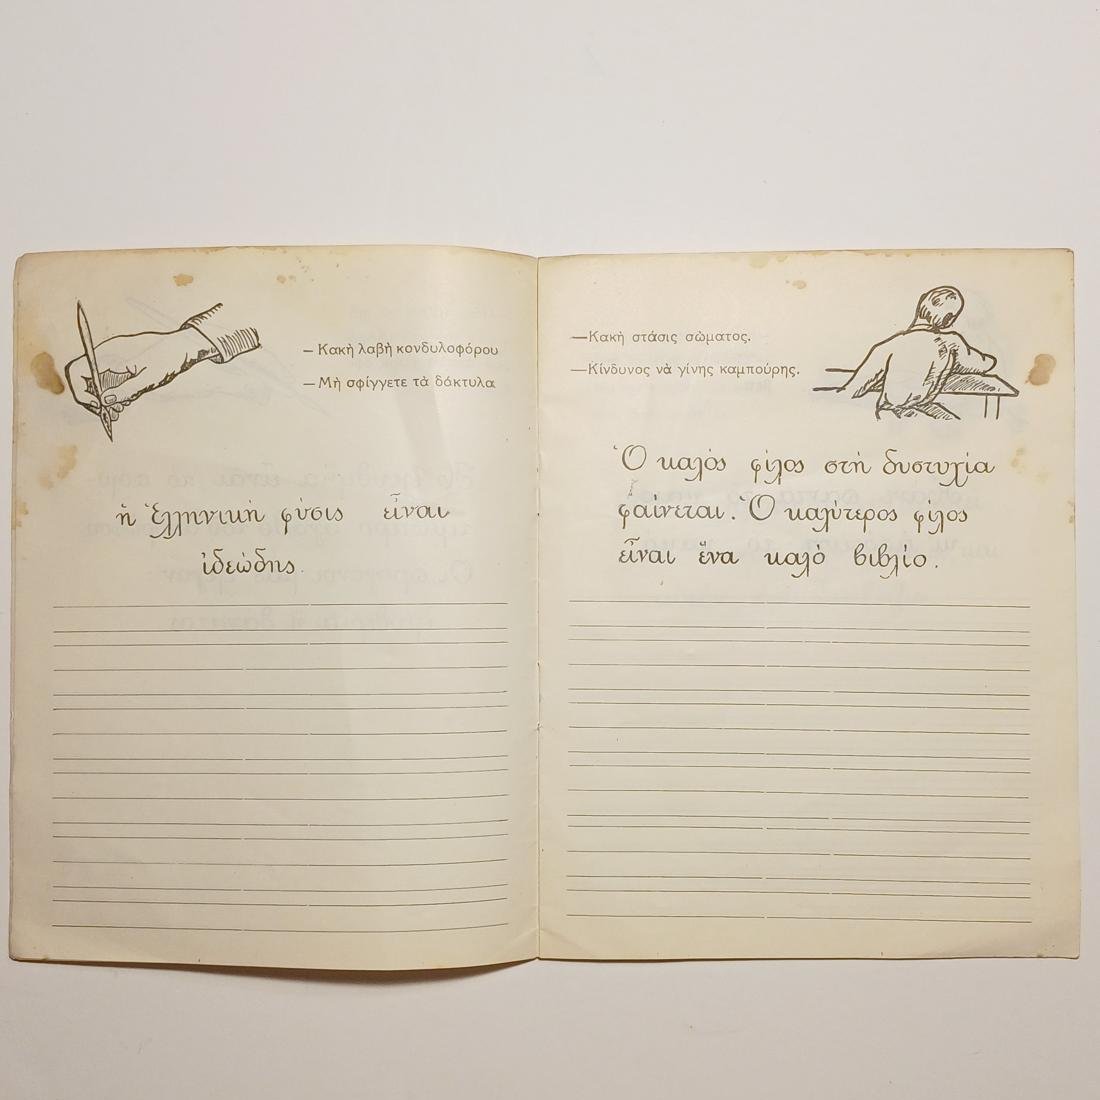 – Κακὴ λαβὴ κονδυλοφόρου
– Μὴ σφίγγετε τὰ δάκτυλα
ἡ Ἑλληνικὴ φύσις εἶναι
ἰδεώδης.
—Κακὴ στάσις σώματος.
—Κίνδυνος νὰ γίνης καμπούρης.
Ὁ καλὸς φίλος στὴ δυστυχία
φαίνεται. Ὁ καλύτερος φίλος
εἶναι ἕνα καλὸ βιβλίο.